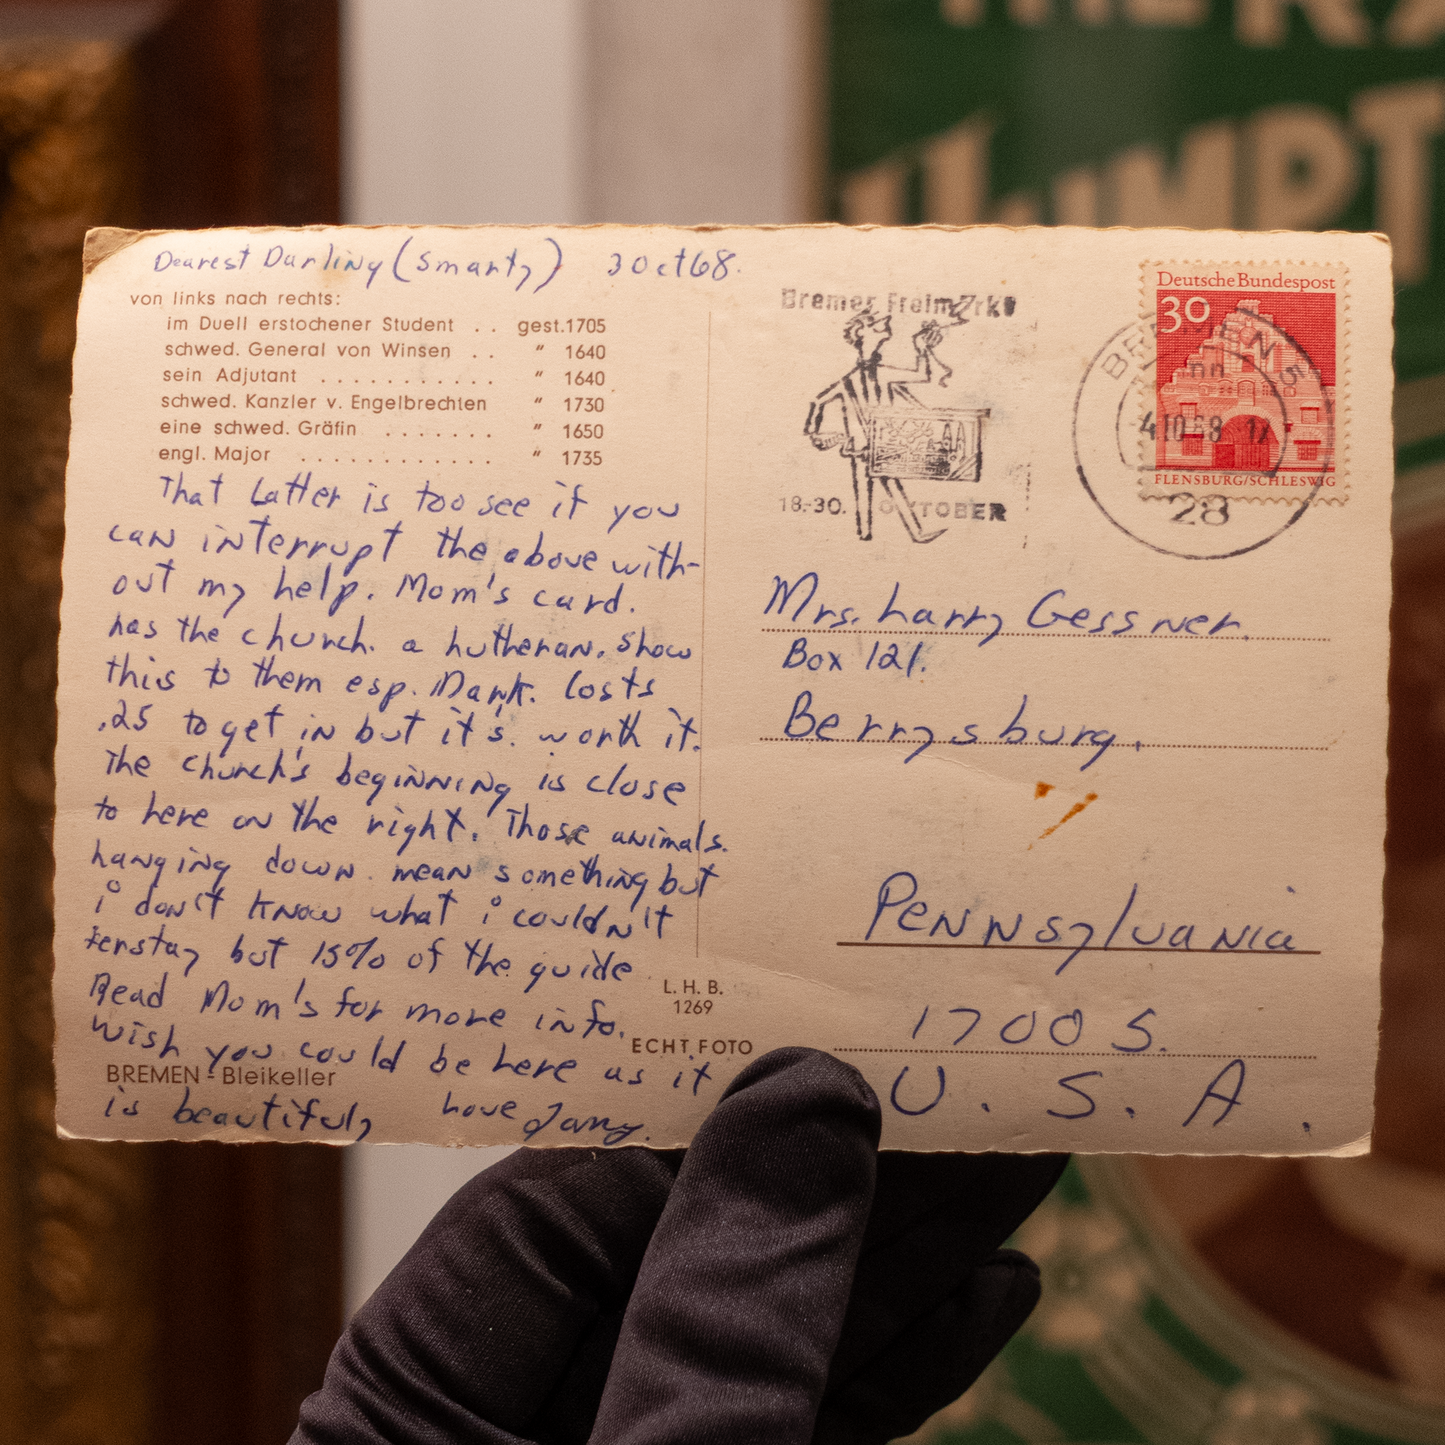 Dearest Darling (Smarty) 3 Oct 68.
von links nach rechts:
im Duell erstochener Student . . gest. 1705
schwed. General von Winsen . . " 1640
sein Adjutant . . . . . . . . . . . " 1640
schwed. Kanzler v. Engelbrechten " 1730
eine schwed. Gräfin . . . . . . . " 1650
engl. Major . . . . . . . . . . . . " 1735
That Latter is too see if you
can interrupt the above with-
out my help. Mom's card.
has the church. a Lutheran. Show
this to them esp. Mark. Costs
.25 to get in but it's. worth it.
The church's beginning is close
to here on the right. Those animals.
hanging down. mean something but
i don't know what i couldn't
stay but 15% of the guide
Read Mom's for more info.
Wish you could be here as it
is beautiful, Love
L. H. B.
1269
ECHT FOTO
BREMEN - Bleikeller
Bremer Freimarkt
18.-30. OKTOBER
Deutsche Bundespost
30
FLENSBURG/SCHLESWIG
BREMEN 5
4.10.68
28
Mrs. Larry Gessner.
Box 121.
Berrysburg.
Pennsylvania
17005.
U. S. A.
THE